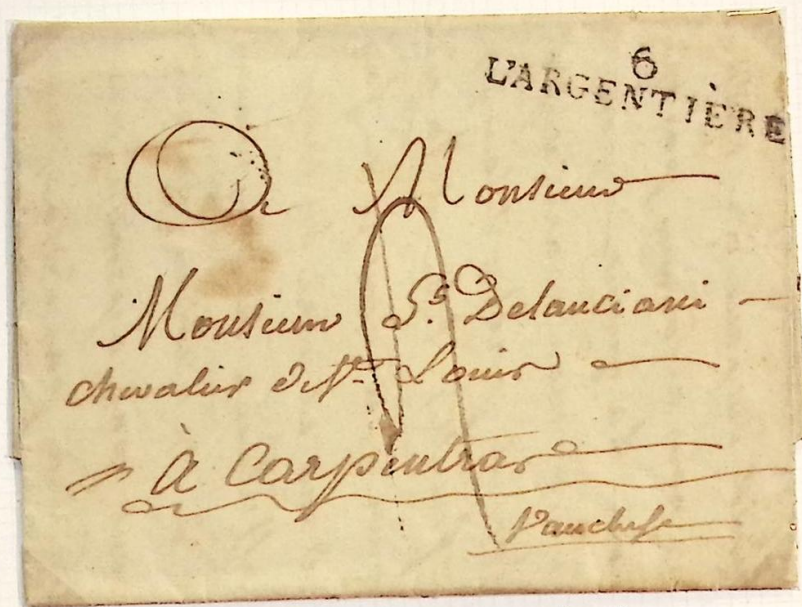 6
L'ARGENTIÈRE
A Monsieur
Monsieur Delanciani
chevalier de St. Louis
à Carpentras
Vaucluse